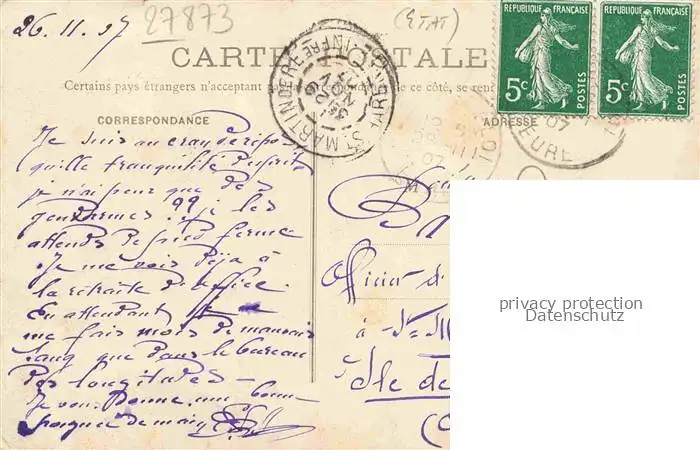 26.11.07
27873
(ETAT)
CARTE POSTALE
Certains pays étrangers n'acceptent pas de ce côté, se ren
CORRESPONDANCE
ADRESSE
RÉPUBLIQUE FRANÇAISE
5c POSTES
RÉPUBLIQUE FRANÇAISE
5c POSTES
ST MARTIN DE RE
Je suis au cran de repos
quille tranquilité d'esprit
je n'ai peur que des
gendarmes !?! je les
attends de pied ferme
Je me vois déjà à
la retraite d'office.
En attendant je
me fais moins de mauvais
sang que dans le bureau
des longitudes —
Je vous donne une bonne
poignée de main
Officier d'
à St M
Ile de
privacy protection
Datenschutz